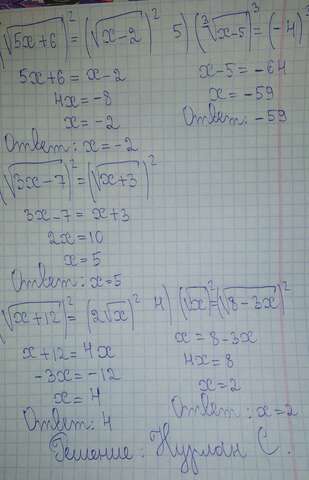 (√5x+6)² = (√x-2)²
5x+6 = x-2
4x = -8
x = -2
Ответ: x = -2
(√3x-7)² = (√x+3)²
3x-7 = x+3
2x = 10
x = 5
Ответ: x = 5
(√x+12)² = (2√x)²
x+12 = 4x
-3x = -12
x = 4
Ответ: 4
4) (√x)² = (√8-3x)²
x = 8-3x
4x = 8
x = 2
Ответ: x = 2
5) (³√x-5)³ = (-4)³
x-5 = -64
x = -59
Ответ: -59
Решение: Нурлан С.